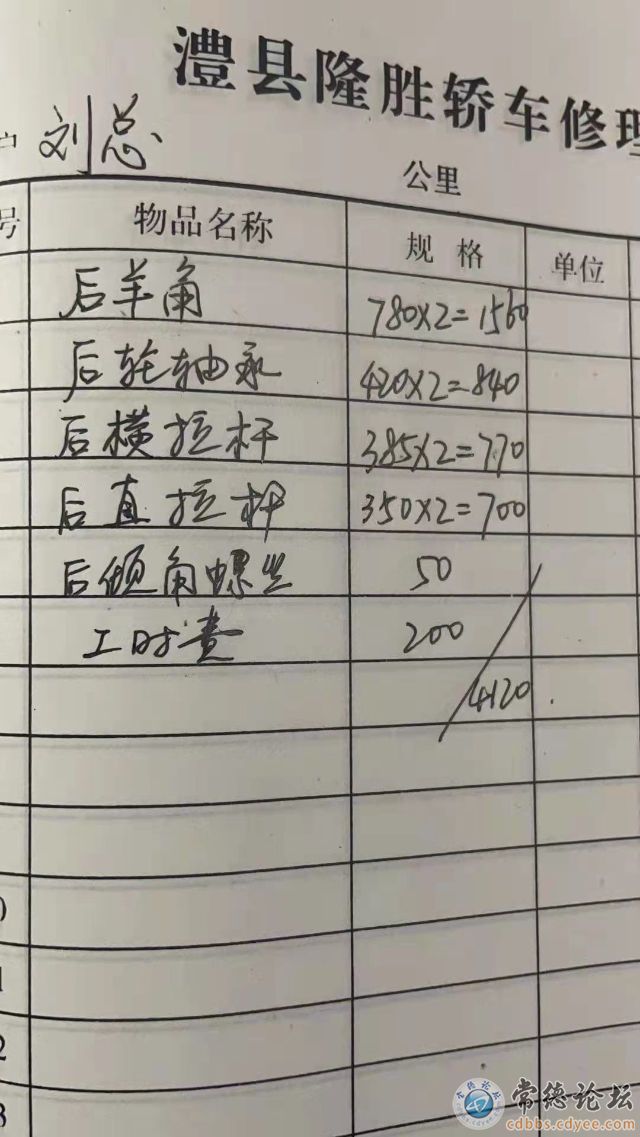 澧县隆胜轿车修理
户 刘总
公里
号 物品名称 规格 单位
后羊角 780×2=1560
后轮轴承 420×2=840
后横拉杆 385×2=770
后直拉杆 350×2=700
后倾角螺丝 50
工时费 200
4120.
0
1
2
3
常德论坛
cdbbs.cdyee.com